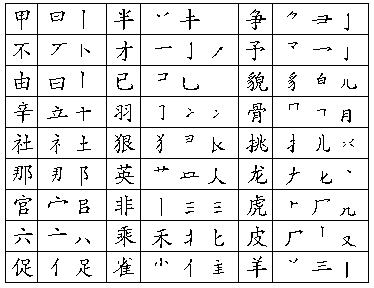 甲 曰 丨 半 丷 キ 争 ⺈ ⺕ 亅
不 丆 卜 才 一 亅 丿 予 龴 乛 亅
由 曰 丨 已 コ 乚 貌 豸 白 儿
辛 立 十 羽 冫 冫 骨 冖 月
社 礻 土 狠 犭 彐 挑 扌 儿
那 阝 英 艹 人 龙 ナ 匕 丶
官 宀 㠯 非 丨 三 三 虎 ⺊ 厂 几
六 亠 八 乘 禾 匕 皮 厂 丨 又
促 亻 足 雀 小 亻 羊 丷 三 丨